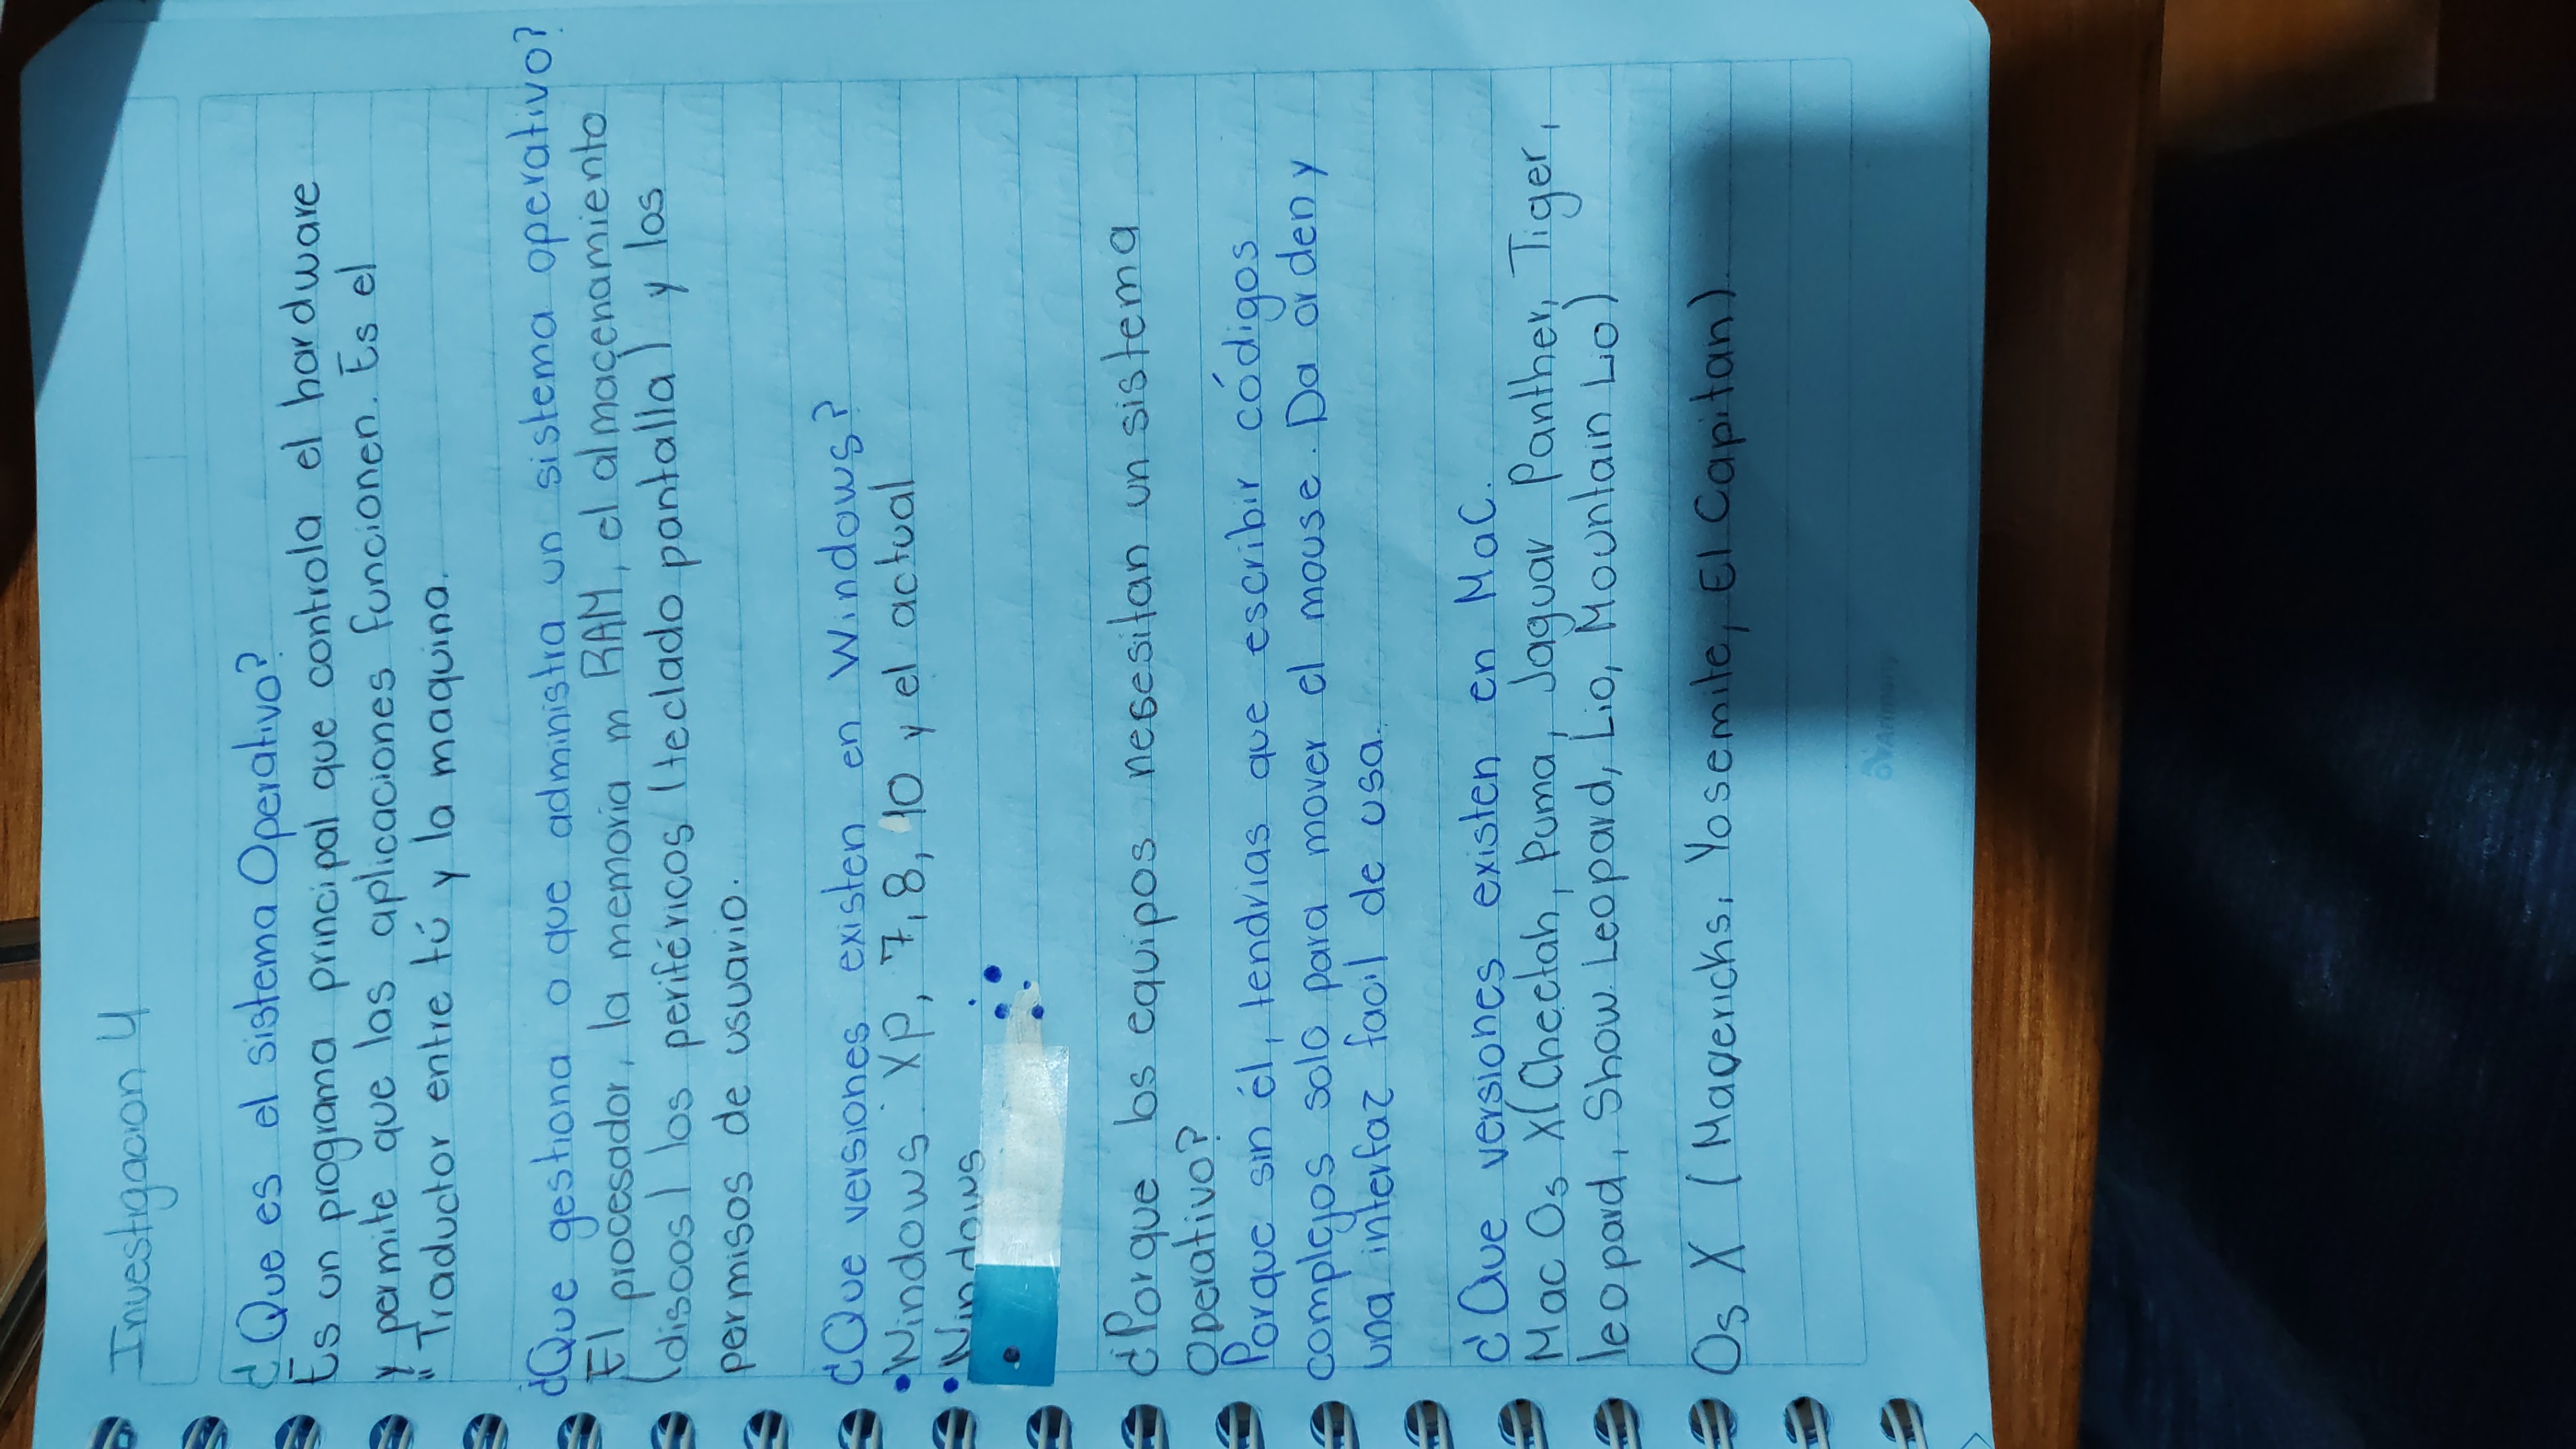 Investigacion 4
¿Que es el sistema Operativo?
Es un programa principal que controla el hardware
y permite que las aplicaciones funcionen. Es el
"Traductor entre tú y la maquina.
¿Que gestiona o que administra un sistema operativo?
El procesador, la memoria m RAM, el almacenamiento
(discos) los periféricos (teclado pantalla) y los
permisos de usuario.
¿Que versiones existen en Windows?
• Windows XP, 7, 8, 10 y el actual
• Windows
¿Porque los equipos nesesitan un sistema
Operativo?
Porque sin él, tendrias que escribir códigos
complejos solo para mover el mouse. Da orden y
una interfaz facil de usa.
¿Que versiones existen en Mac.
Mac Os X (Cheetah, Puma, Jaguar Panther, Tiger,
leopard, Show Leopard, Lio, Mountain Lio)
Os X (Maverichs, Yosemite, El Capitan)